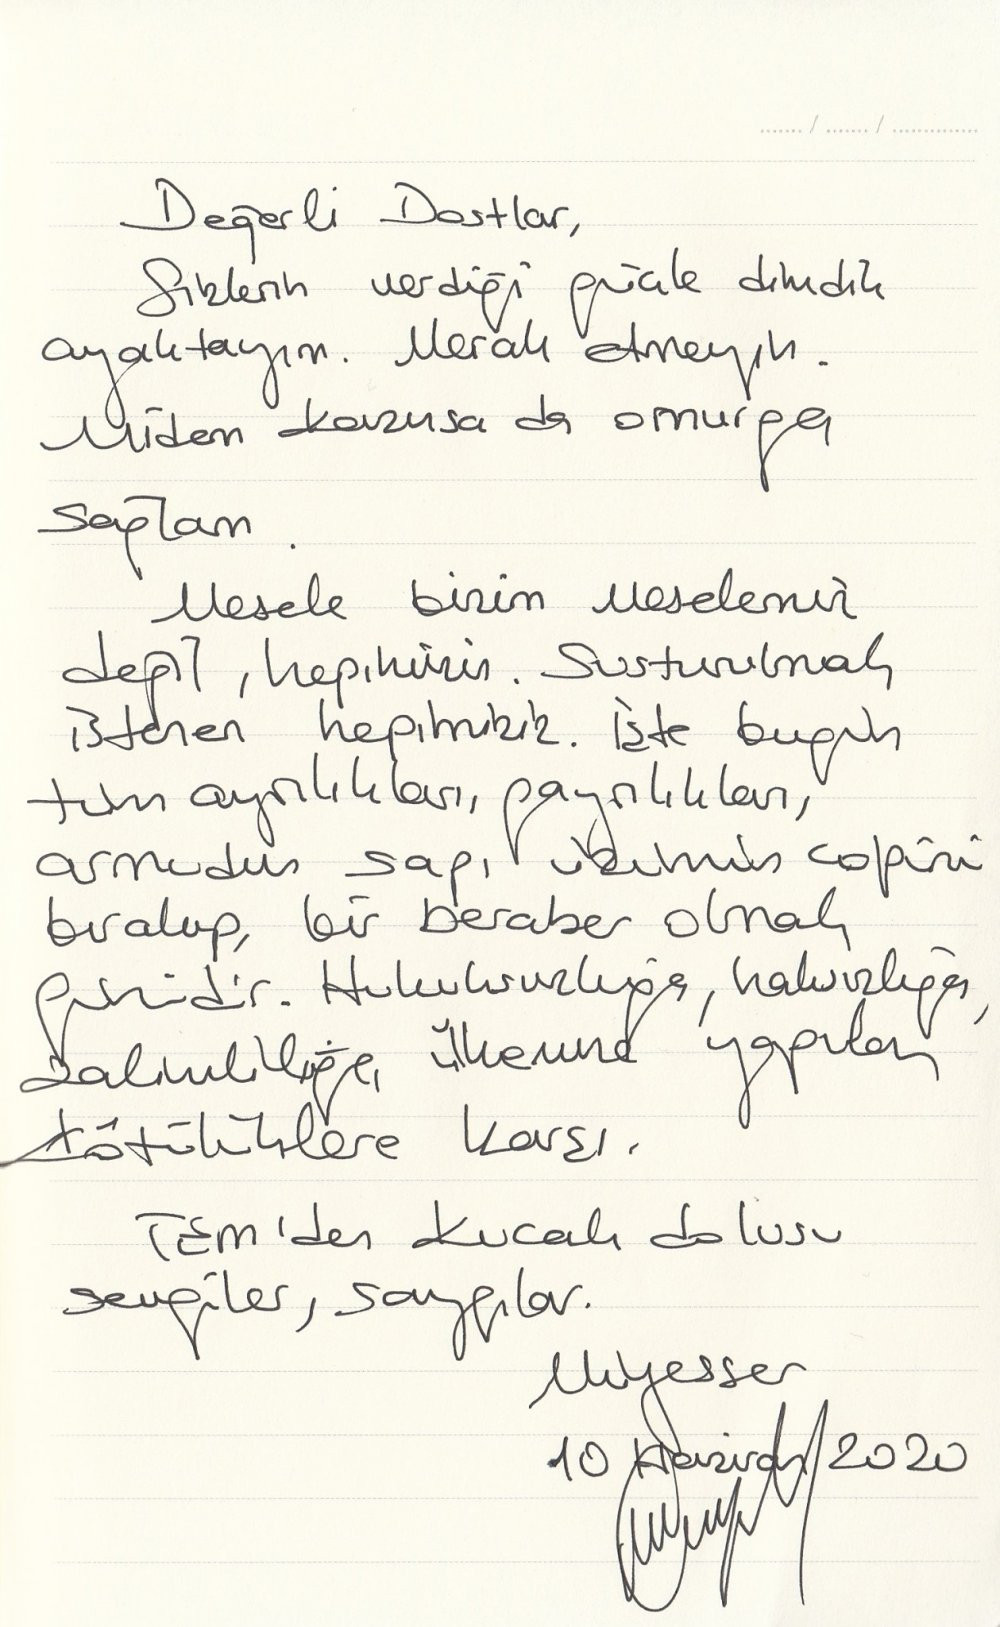 Değerli Dostlar,
Sizlerin verdiği güçle dimdik
ayaktayım. Merak etmeyin.
Midem kazınsa da omurga
sağlam.
Mesele bizim meselemiz
değil, hepimizin. Susturulmak
istenen hepimiziz. İşte bugün
tüm ayrılıkları, gayrılıkları,
armudun sapı üzümün çöpünü
bırakıp, bir beraber olmak
günüdür. Hukuksuzluğa, haksızlığa,
zalimliliğe, ülkemize yapılan
kötülüklere karşı.
TEM'den kucak dolusu
sevgiler, saygılar.
Müyesser
10 Haziran 2020